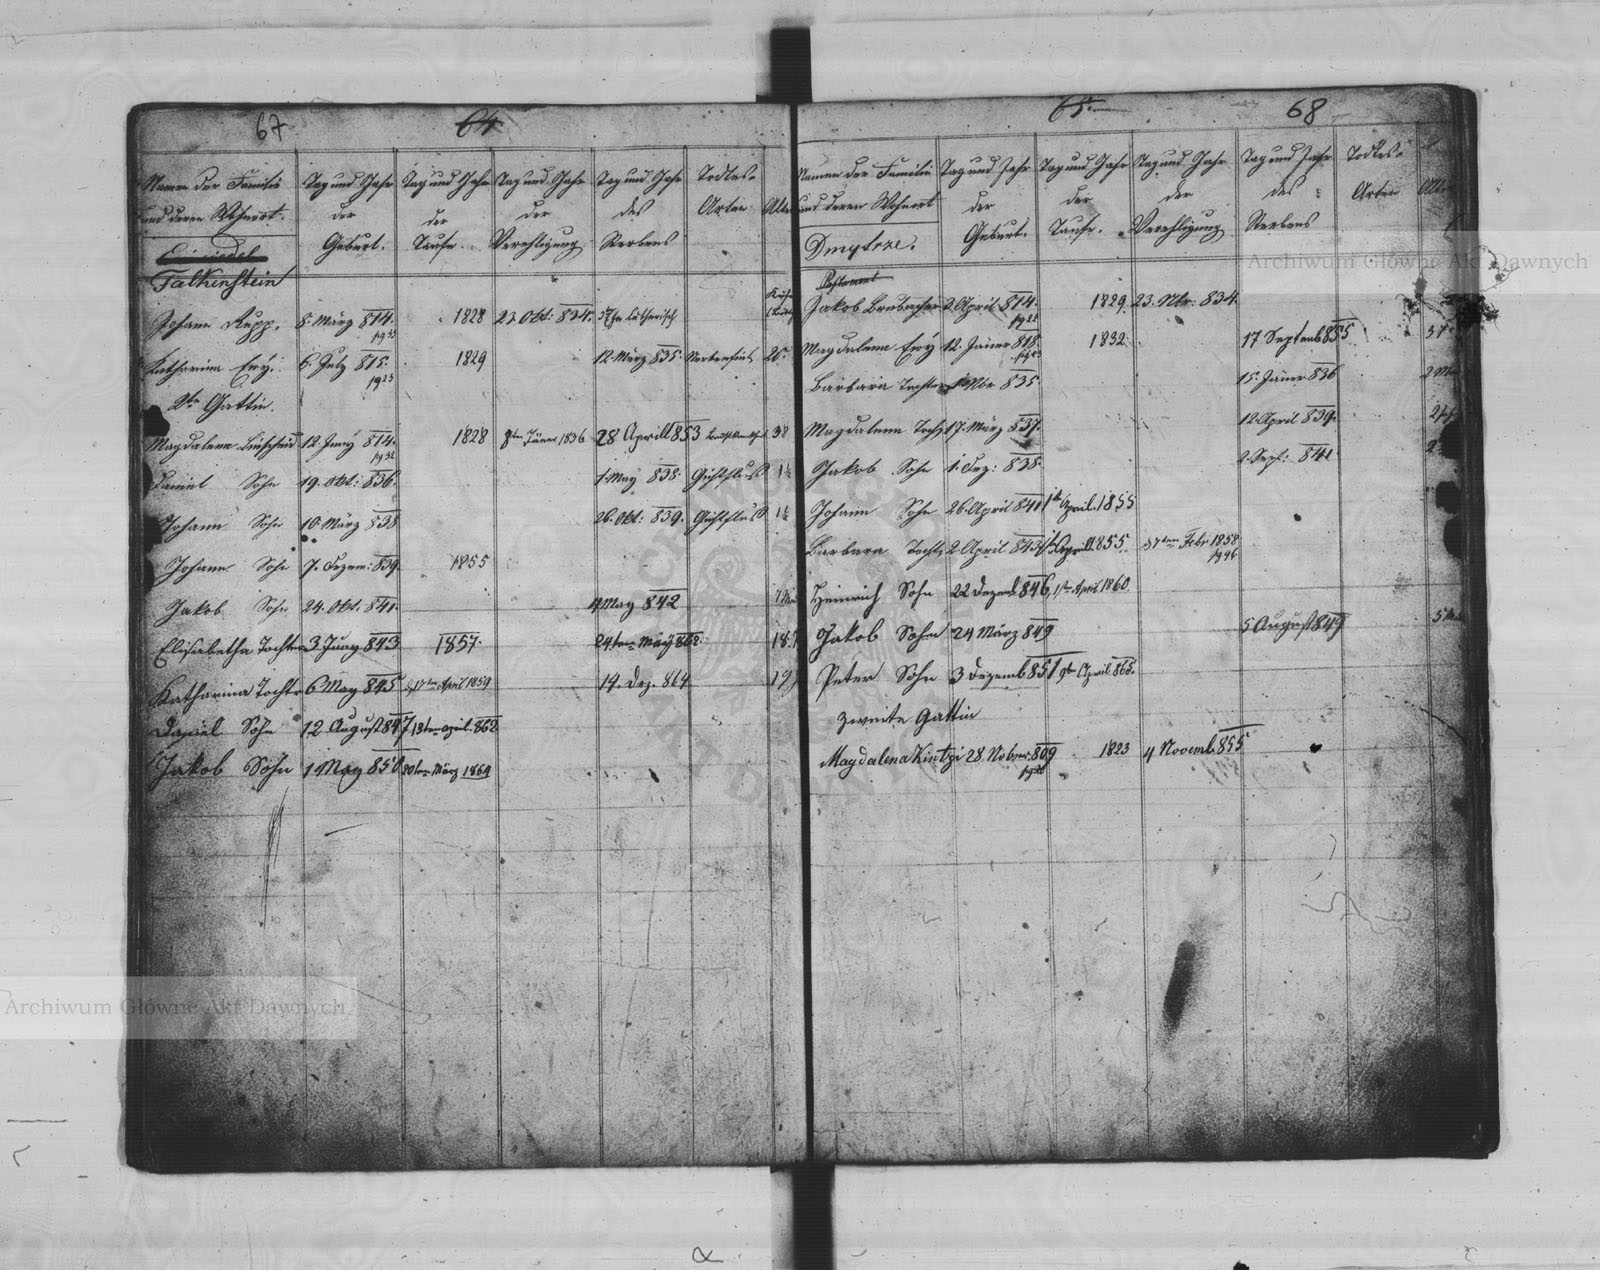 67 64.
Namen der Familie Tag und Jahr Tag und Jahr Tag und Jahr Tag und Jahr Todtes-
und deren Wohnort. der der der des Arten Alter
Geburt. Taufe. Verehligung Sterbens
Einsiedel
Falkenstein
Johann Rupp. 8. März 814. 1828 23 Okt: 834.
pg 33
Katharina Ewy. 6. July 815. 1829 12. März 835. Nervenfieb 20.
pg 23
2te Gattin.
Magdalena 12. Juny 814. 1828 8ten Jäner 1836 28 Aprill 853 38
pg 32
Daniel Sohn 19. Okt: 836. 1. May 838. 1½
Johann Sohn 10. März 838 26. Okt: 839. 1½
Johann Sohn 7. Dezem: 839. 1855
Jakob Sohn 24. Okt: 841. 4 May 842 7 Mo
Elisabetha Tochter 3 Juny 843 1857. 24ten May 862. 18.
Katharina Tochter 6 May 845 17ten April 1859 14. Dez. 864 19
Daniel Sohn 12 August 847 13ten April. 862
Jakob Sohn 1 May 850 20ten März 1864
65. 68
Namen der Familie Tag und Jahr Tag und Jahr Tag und Jahr Tag und Jahr Todtes-
und deren Wohnort der der der des Arten Alt
Geburt. Taufe. Verehligung Sterbens
Dmytrze.
Jakob Brubacher 2 April 814. 1829. 23. Nbr: 834.
Magdalena Ewy 12. Jäner 818. 1832. 17 Septemb 855 37
Barbara Tochter Nov 835. 15. Jäner 836 2 Mo
Magdalena Tocht 17. März 837. 12 April 839. 2
Jakob Sohn 1. Dez: 838. 2. Sept: 841 2
Johann Sohn 26. April 841 1te April. 1855
Barbara Tocht 2 April 843 April 1855. 7ten Febr 1858
pg 96
Heinrich Sohn 22 Dezemb 846, 1ten April 1860.
Jakob Sohn 24 März 849 5 August 849 5 Mo
Peter Sohn 3 Dezemb 851 9ten April 865.
zweite Gattin
Magdalena Kintzi 28. Nobem: 809 1823 4 Novemb 855
Archiwum Główne Akt Dawnych
Archiwum Główne Akt Dawnych